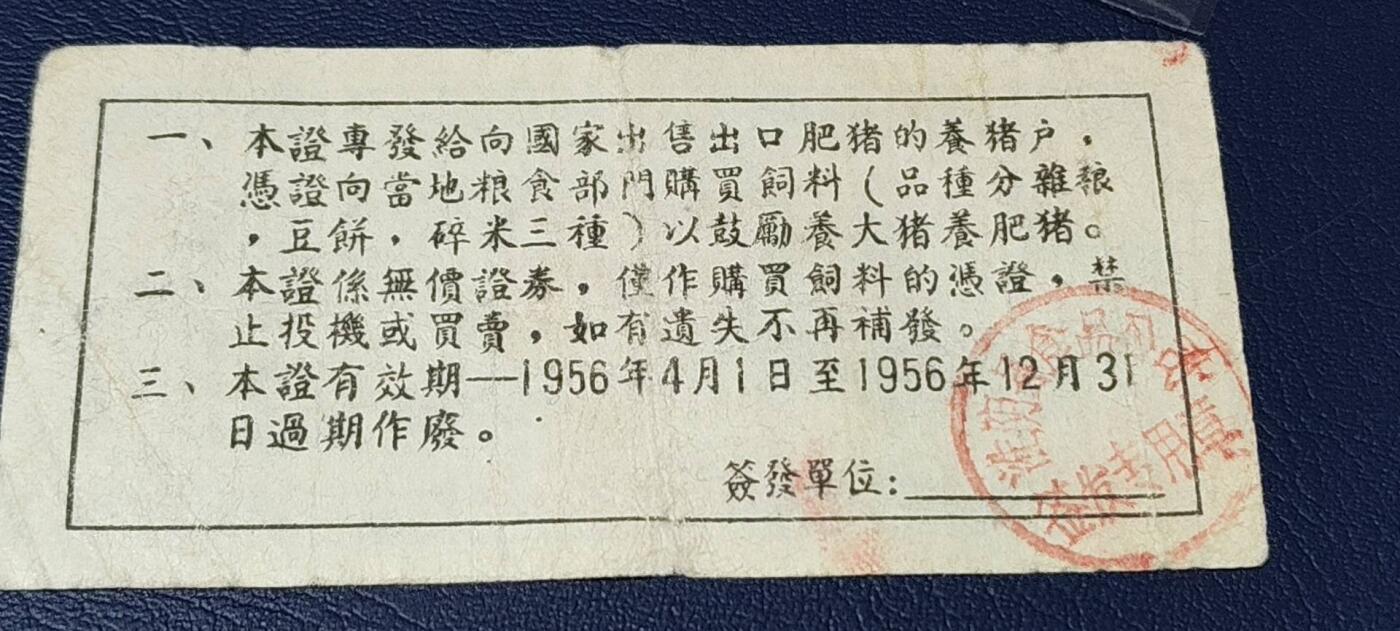 一、本證專發給向國家出售出口肥猪的養猪户，
憑證向當地粮食部門購買飼料（品種分雜粮
，豆餅，碎米三種）以鼓勵養大猪養肥猪。
二、本證係無價證券，僅作購買飼料的憑證，禁
止投機或買賣，如有遺失不再補發。
三、本證有效期—1956年4月1日至1956年12月31
日過期作廢。
簽發單位：
食品公司
签发专用章